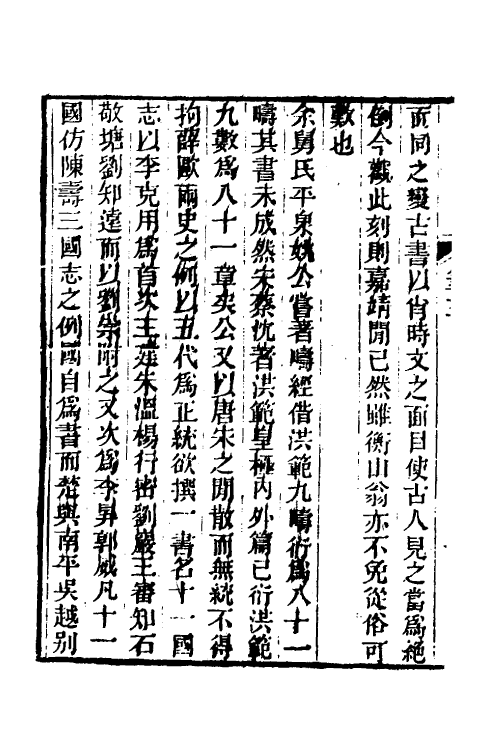 而同之變古書以肖時文之面目使古人見之當爲絕
倒今觀此刻則嘉靖閒已然雖衡山翁亦不免從俗可
歎也
余舅氏平泉姚公嘗著疇經借洪範九疇衍爲八十一
疇其書未成然宋蔡沈著洪範皇極內外篇已衍洪範
九數爲八十一章矣公又以唐宋之閒散而無統不得
拘薛歐兩史之例以五代爲正統欲撰一書名十一國
志以李克用爲首次王建朱溫楊行密劉巖王審知石
敬塘劉知遠而以劉崇附之又次爲李昪郭威凡十一
國仿陳壽三國志之例國自爲書而楚與南平吳越別